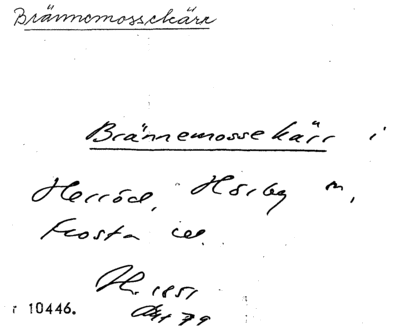 Brännemossekärr
Brännemossekärr i
Herröd, Hörby sn,
Frosta hd.
H. 1851
Akt 79
r 10446.